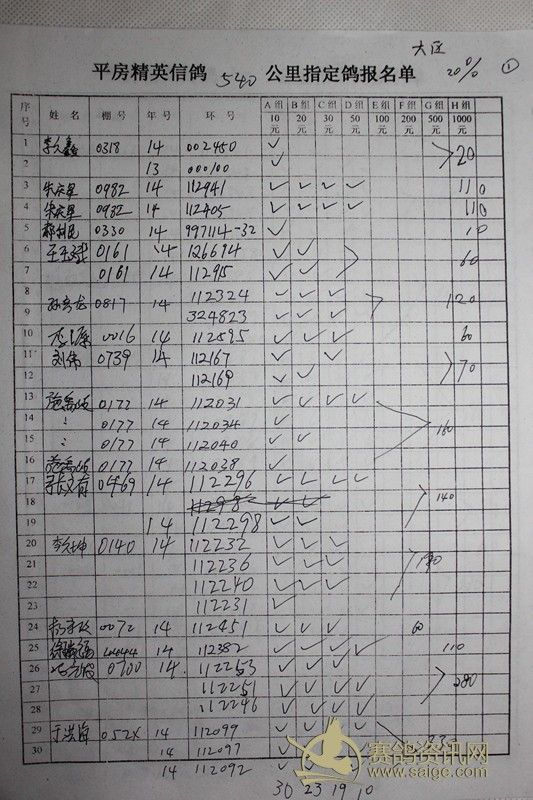 大区
平房精英信鸽 540 公里指定鸽报名单 20% ①
序号 姓名 棚号 年号 环号 A组10元 B组20元 C组30元 D组50元 E组100元 F组200元 G组500元 H组1000元
1 0318 14 002450 ✓ 20
2 13 000100 ✓
3 0982 14 112941 ✓ ✓ ✓ ✓ 110
4 0982 14 112405 ✓ ✓ ✓ ✓ 110
5 0330 14 997114-32 ✓ 10
6 0161 14 126694 ✓ ✓ 60
7 0161 14 112915 ✓ ✓
8 0817 14 112324 ✓ ✓ ✓ 120
9 324823 ✓ ✓ ✓
10 0016 14 112595 ✓ ✓ ✓ 60
11 刘伟 0739 14 112167 ✓ ✓ 70
12 112169 ✓ ✓
13 0177 14 112031 ✓ ✓ ✓ ✓ 160
14 0177 14 112034 ✓
15 0177 14 112040 ✓ ✓
16 0177 14 112038 ✓
17 0469 14 112296 ✓ ✓ ✓ ✓ 140
18
19 14 112298 ✓ ✓
20 0140 14 112232 ✓ ✓ ✓ 190
21 112236 ✓ ✓ ✓
22 112240 ✓ ✓ ✓
23 112231 ✓
24 0072 14 112451 ✓ ✓ ✓ 60
25 14 112382 ✓ ✓ ✓ ✓ 110
26 0700 14 112253 ✓ ✓ ✓ 280
27 112251 ✓ ✓ ✓ ✓
28 112246 ✓ ✓ ✓ ✓
29 于洪海 14 112099 ✓ ✓ ✓ ✓
30 14 112097 ✓
14 112092
30 23 19 10
赛鸽资讯网
www.saige.com